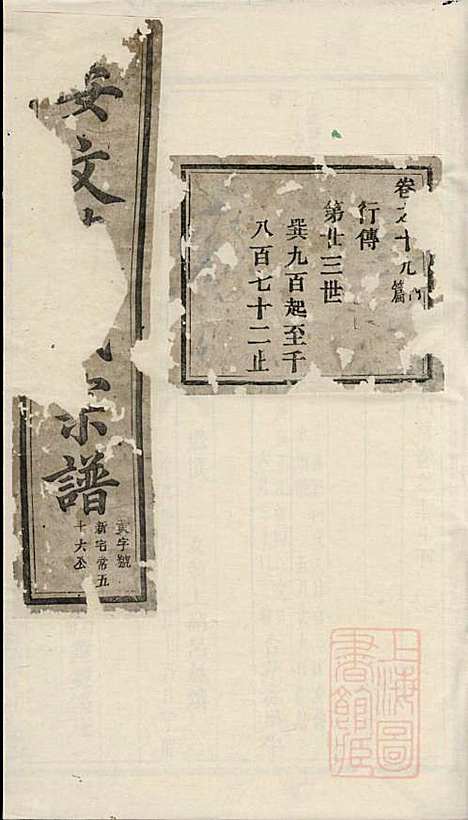 卷之十九內篇
行傳
第廿三世
巽九百起至千
八百七十二止
安文
宗譜
字號
新宅常五
十六公
上海圖書館藏